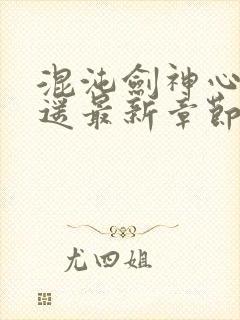 混沌劍神心
逆最新章節
尤四姐